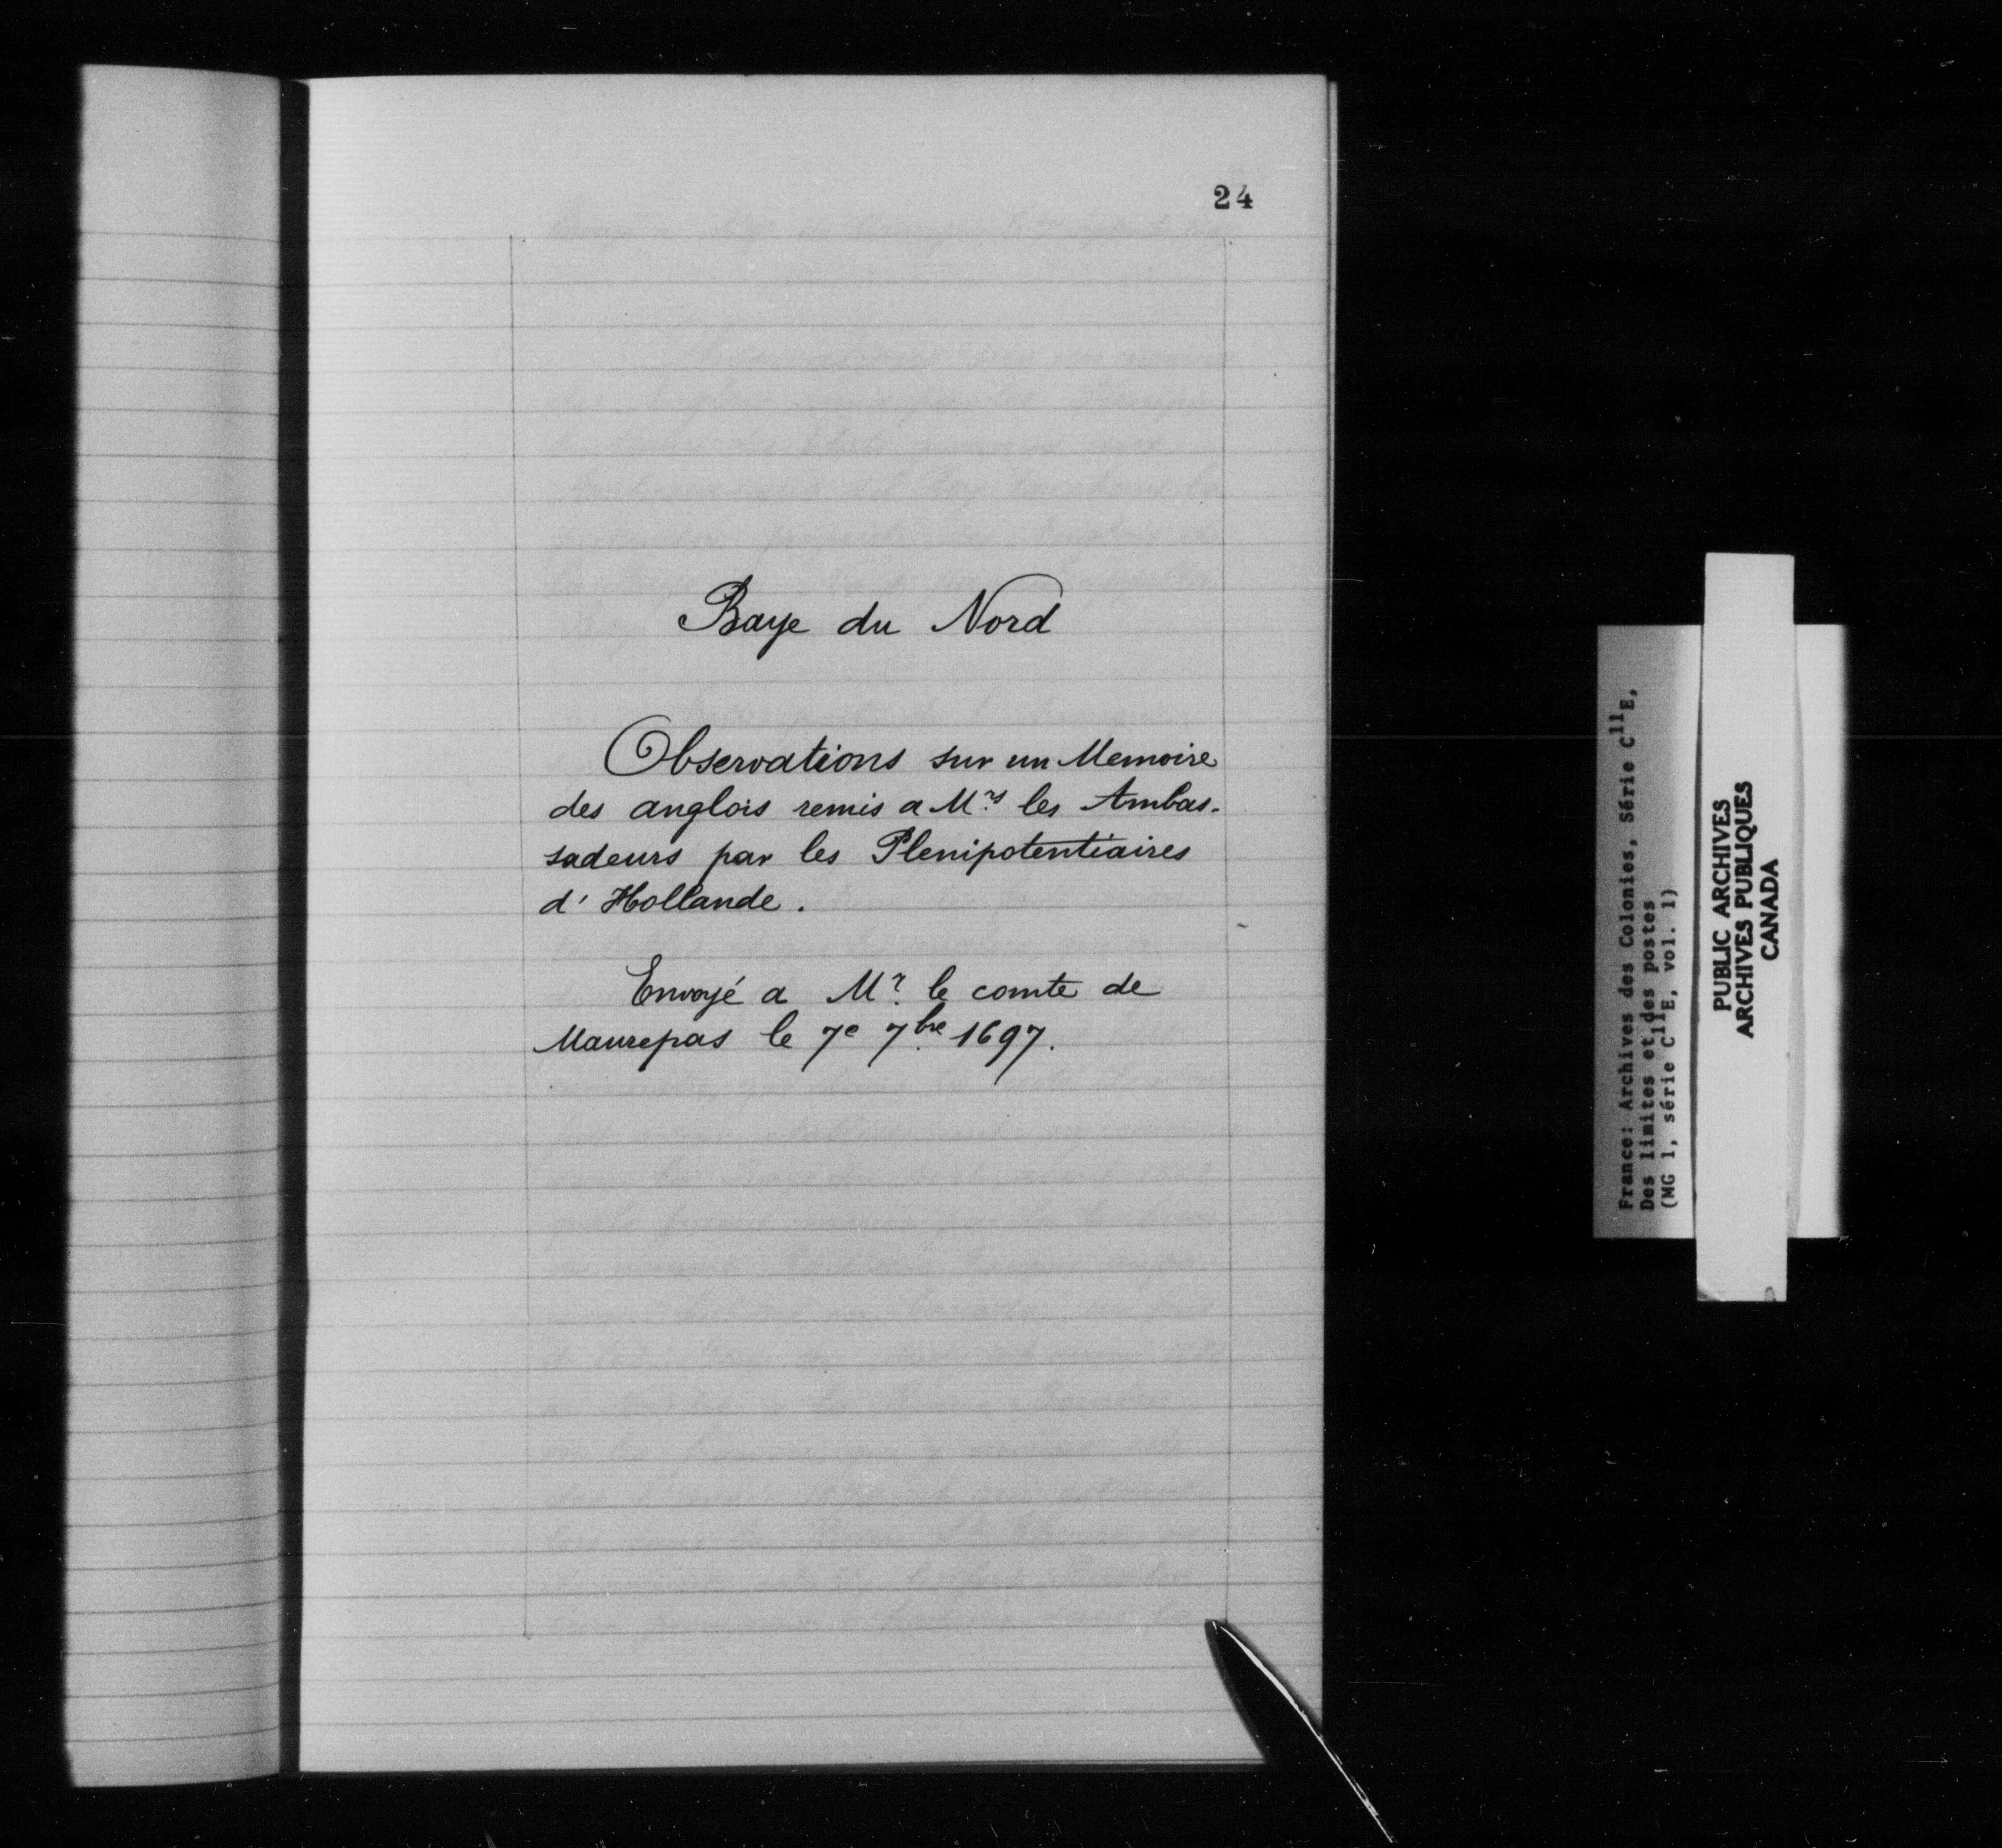 24
Baye du Nord
Observations sur un Memoire
des anglois remis a Mrs les Ambas-
sadeurs par les Plenipotentiaires
d'Hollande.
Envoyé a Mr. le comte de
Maurepas le 7e 7bre 1697.
France: Archives des Colonies, Série C11E,
Des limites et des postes
(MG 1, série C11E, vol. 1)
PUBLIC ARCHIVES
ARCHIVES PUBLIQUES
CANADA